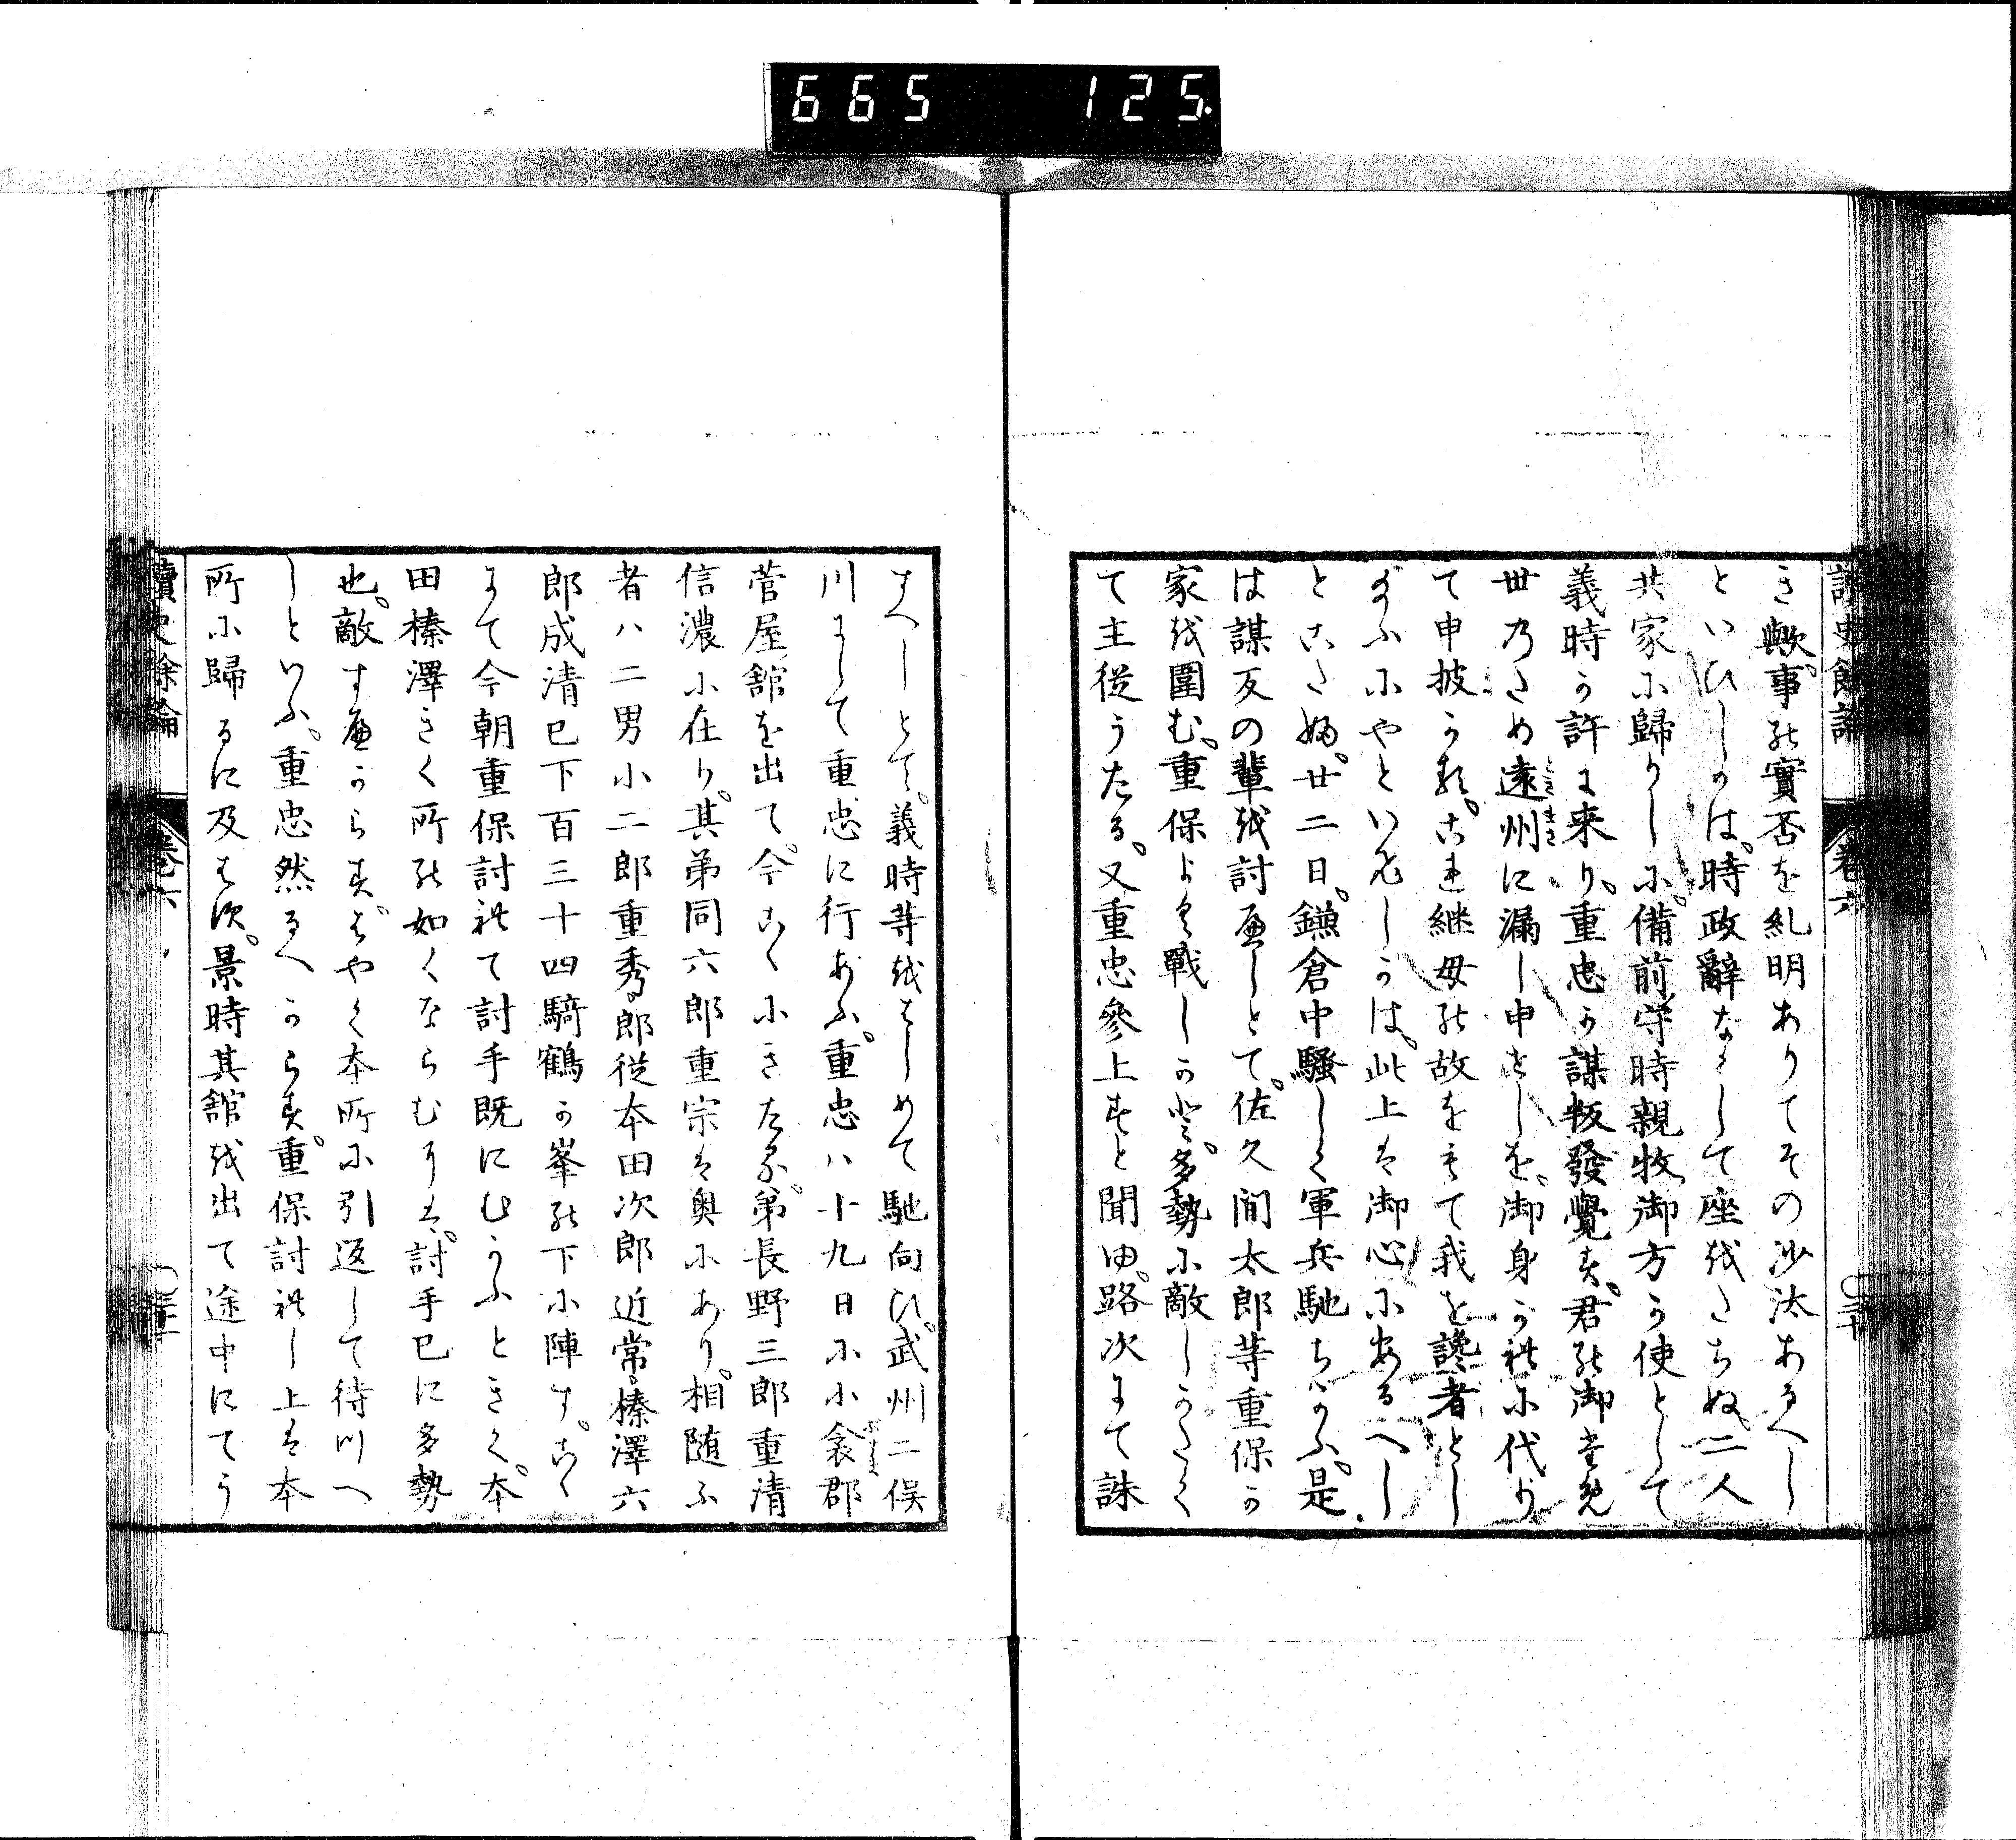 665 125.
讀史餘論 卷六 〇三十
き歟。事の實否を糺明ありてその沙汰あるへし
といひしかは。時政辭なくして座をたちぬ。二人
共家に歸りしに。備前守時親牧御方か使として
義時か許に来り。重忠か謀叛發覺す。君の御ため
世のため遠州に漏し申せしを。御身かれに代り
て申披かる。これ継母の故をもて我を讒者とし
給ふにやといひしかは。此上は御心にあるへし
とこたふ。廿二日。鎌倉中騒しく軍兵馳ちかふ。是
は謀反の輩を討へしとて。佐久間太郎等重保か
家を圍む。重保よく戰しかと。多勢に敵しかたく
て主従うたる。又重忠參上すと聞ゆ。路次にて誅
すへしとて。義時等をはしめて馳向ひ。武州二俣
川にして重忠に行あふ。重忠ハ十九日に小衾郡
菅屋舘を出て。今こゝにきたる。弟長野三郎重清
信濃に在り。其弟同六郎重宗は奥にあり。相随ふ
者ハ二男小二郎重秀。郎従本田次郎近常。榛澤六
郎成清已下百三十四騎鶴か峯の下に陣す。こゝ
にて今朝重保討れて討手既にむかふときく。本
田榛澤きく所の如くならむには。討手已に多勢
也。敵すへからす。はやく本所に引返して待川へ
しといふ。重忠然るへからす。重保討れし上は本
所に歸るに及はす。景時其舘を出て途中にてう
讀史餘論 卷六 〇三十一